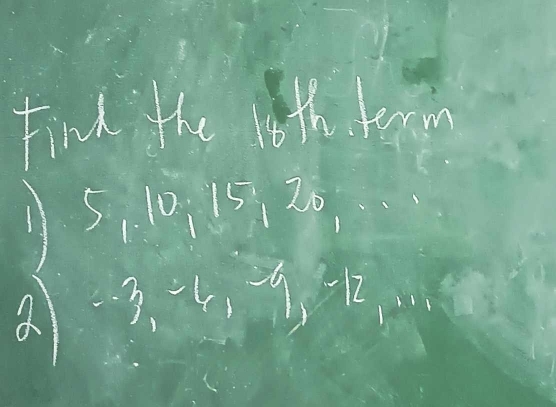 Find the 16th term
1) 5, 10, 15, 20, ...
2) -3, -6, -9, -12, ...